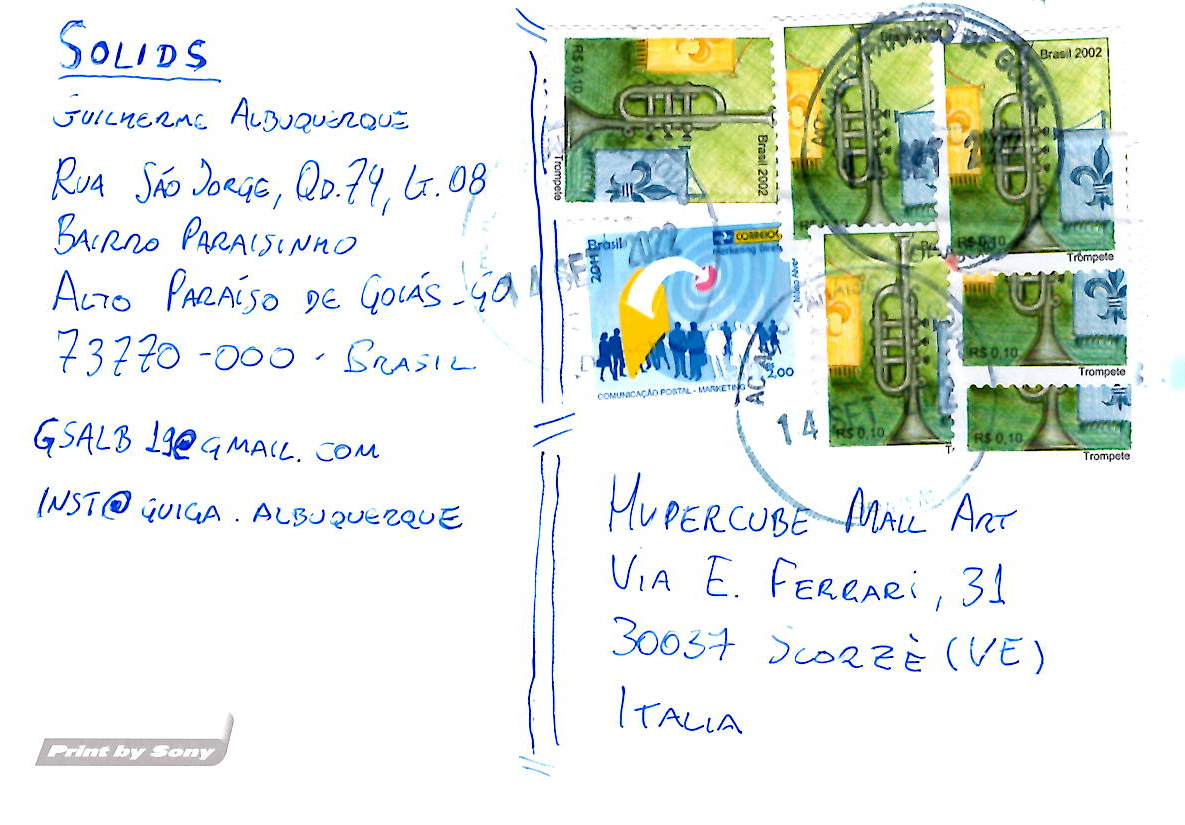 SOLIDS
GUILHERME ALBUQUERQUE
RUA SÃO JORGE, QD.74, LT. 08
BAIRRO PARAISINHO
ALTO PARAÍSO DE GOIÁS - GO
73770-000 - BRASIL
GSALB19@GMAIL.COM
INST@GUIGA.ALBUQUERQUE
Print by Sony
R$ 0,10
Brasil 2002
Trompete
R$ 0,10
Brasil 2002
R$ 0,10
Trompete
Brasil
2011
CORREIOS
marketing direto
2,00
COMUNICAÇÃO POSTAL - MARKETING
R$ 0,10
R$ 0,10
Trompete
R$ 0,10
Trompete
14 SET
14 SET
HYPERCUBE MAIL ART
VIA E. FERRARI, 31
30037 SCORZÈ (VE)
ITALIA